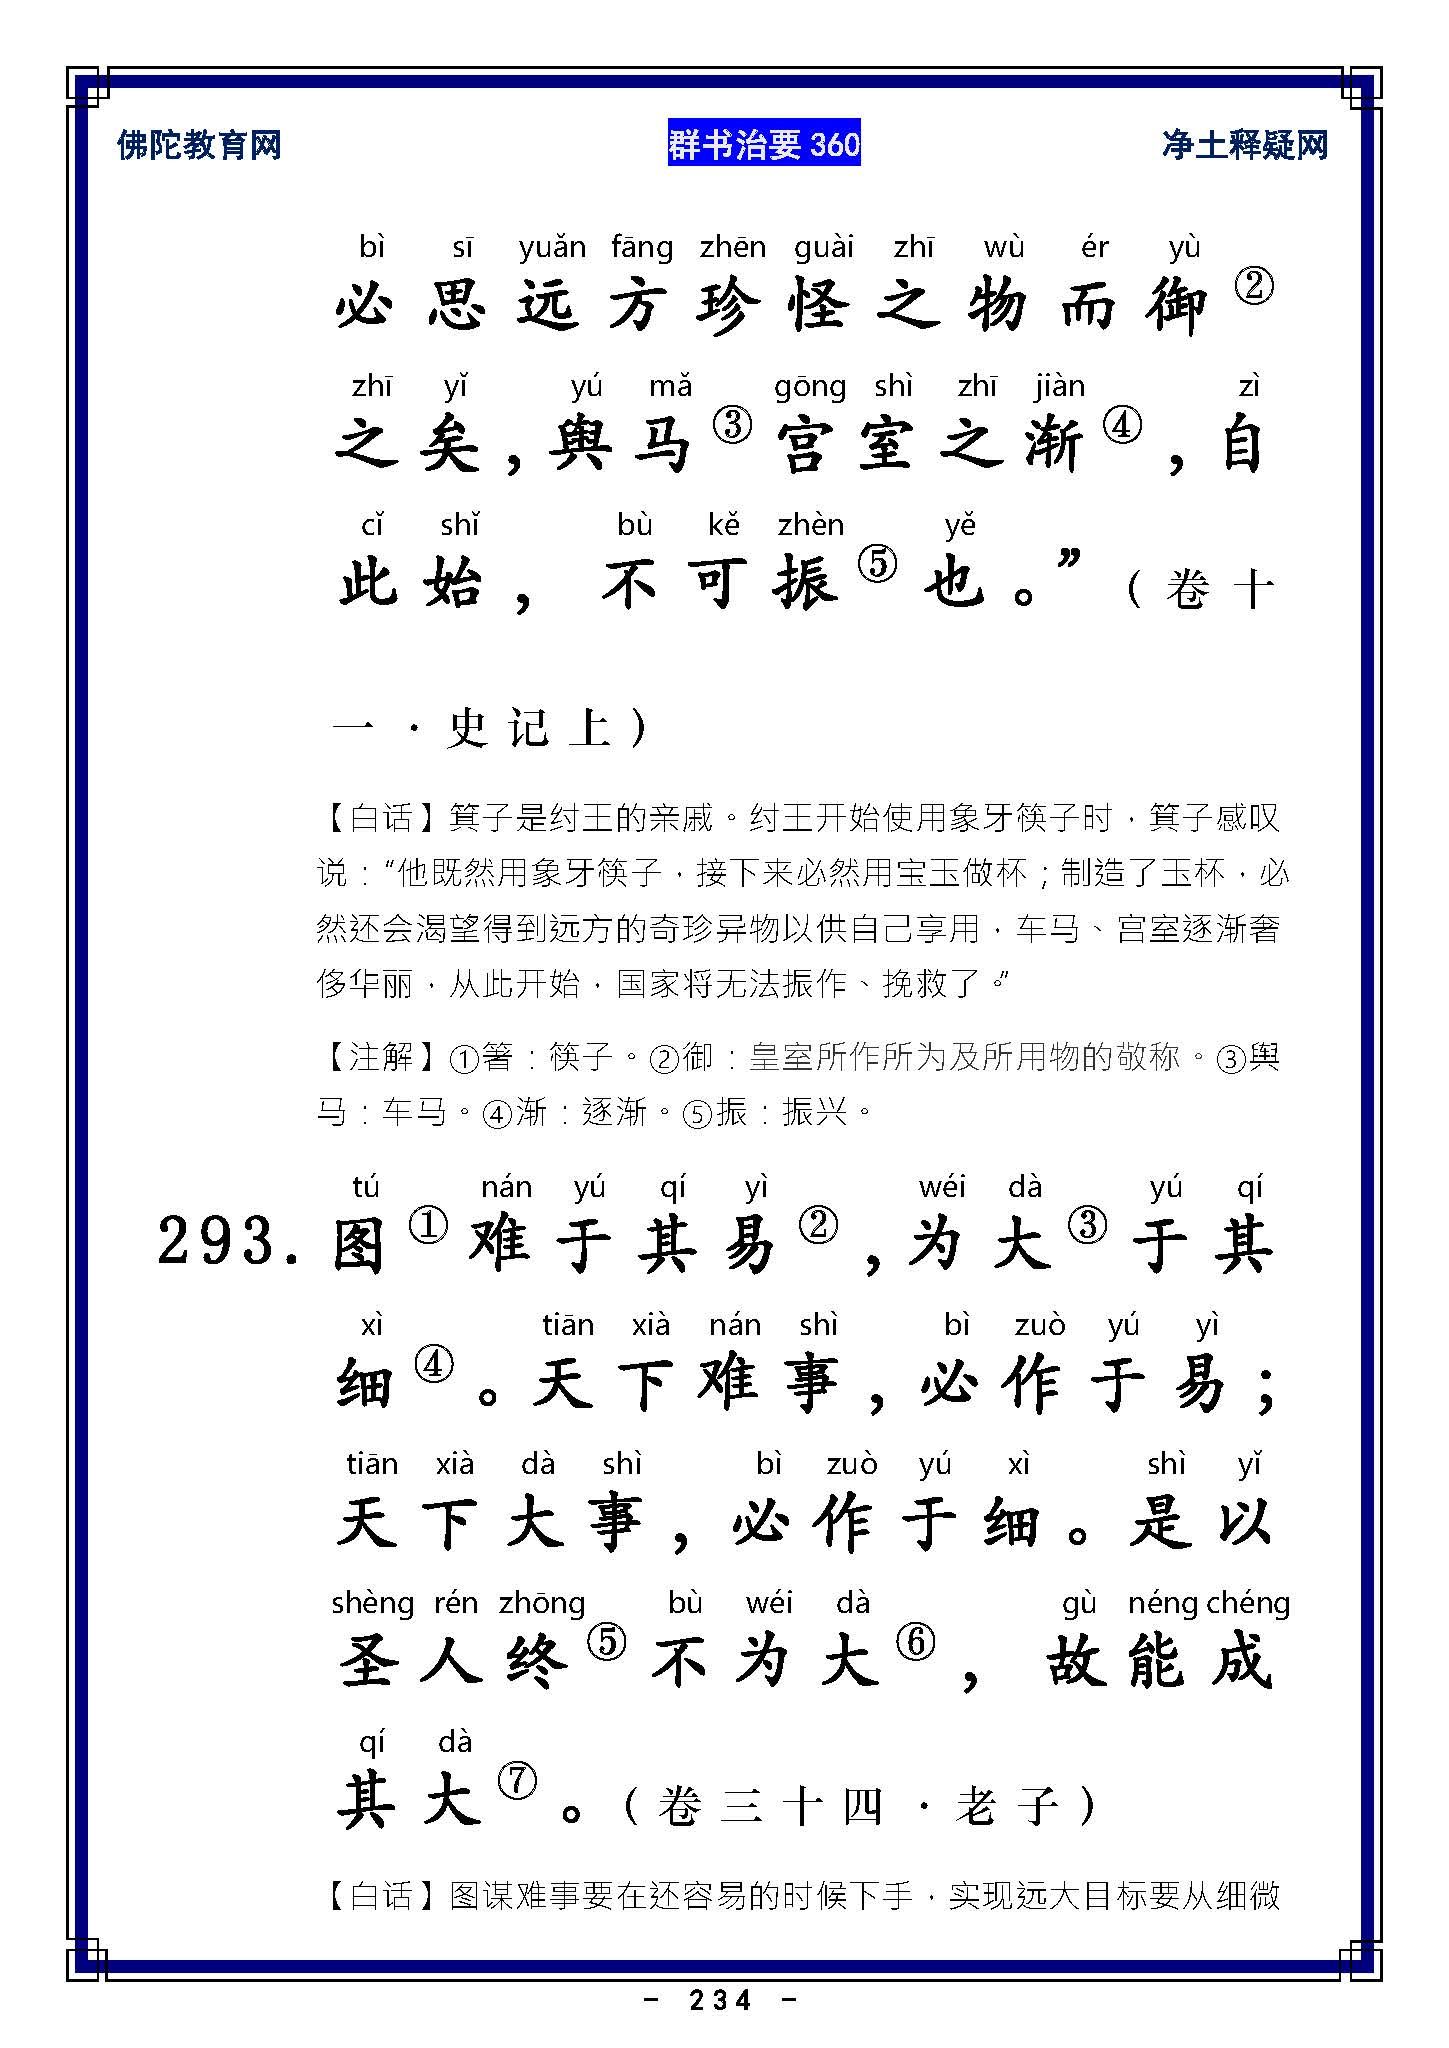 佛陀教育网 群书治要 360 净土释疑网
bì sī yuǎn fāng zhēn guài zhī wù ér yù
必思远方珍怪之物而御②
zhī yǐ yú mǎ gōng shì zhī jiàn zì
之矣，舆马③宫室之渐④，自
cǐ shǐ bù kě zhèn yě
此始，不可振⑤也。”（卷十
一·史记上）
【白话】箕子是纣王的亲戚。纣王开始使用象牙筷子时，箕子感叹
说：“他既然用象牙筷子，接下来必然用宝玉做杯；制造了玉杯，必
然还会渴望得到远方的奇珍异物以供自己享用，车马、宫室逐渐奢
侈华丽，从此开始，国家将无法振作、挽救了。”
【注解】①箸：筷子。②御：皇室所作所为及所用物的敬称。③舆
马：车马。④渐：逐渐。⑤振：振兴。
tú nán yú qí yì wéi dà yú qí
293. 图①难于其易②，为大③于其
xì tiān xià nán shì bì zuò yú yì
细④。天下难事，必作于易；
tiān xià dà shì bì zuò yú xì shì yǐ
天下大事，必作于细。是以
shèng rén zhōng bù wéi dà gù néng chéng
圣人终⑤不为大⑥，故能成
qí dà
其大⑦。（卷三十四·老子）
【白话】图谋难事要在还容易的时候下手，实现远大目标要从细微
- 234 -